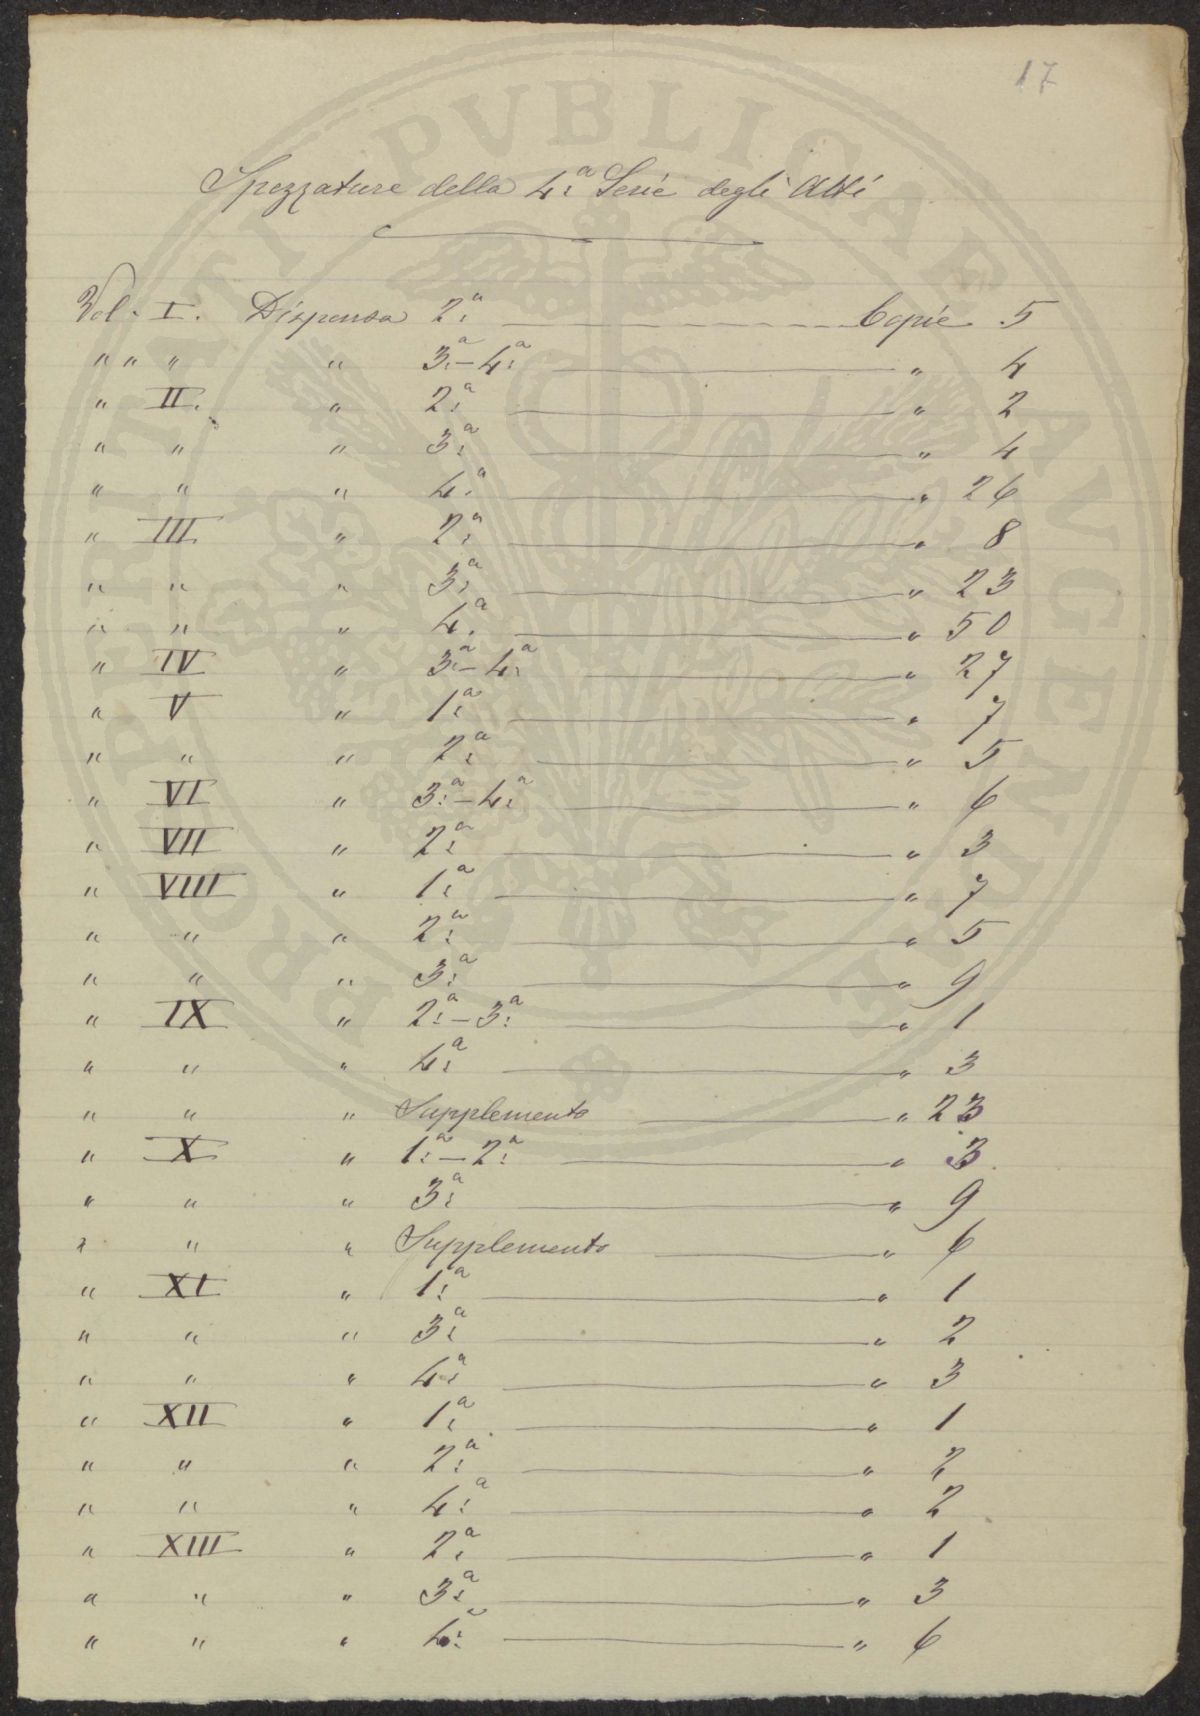 17
PROSPERITATI PVBLICAE AVGENDAE
Spezzature della 4.ª Serie degli Atti
Vol. I. Dispensa 2.ª Copie 5
" " " " 3.ª-4.ª " 4
" II. " 2.ª " 2
" " " 3.ª " 4
" " " 4.ª " 26
" III. " 2.ª " 8
" " " 3.ª " 23
" " " 4.ª " 50
" IV " 3.ª-4.ª " 27
" V " 1.ª " 7
" " " 2.ª " 5
" VI " 3.ª-4.ª " 6
" VII " 2.ª " 3
" VIII " 1.ª " 7
" " " 2.ª " 5
" " " 3.ª " 9
" IX " 2.ª-3.ª " 1
" " " 4.ª " 3
" " " Supplemento " 23
" X " 1.ª-2.ª " 3
" " " 3.ª " 9
" " " Supplemento " 6
" XI " 1.ª " 1
" " " 3.ª " 2
" " " 4.ª " 3
" XII " 1.ª " 1
" " " 2.ª " 2
" " " 4.ª " 2
" XIII " 2.ª " 1
" " " 3.ª " 3
" " " 4.ª " 6